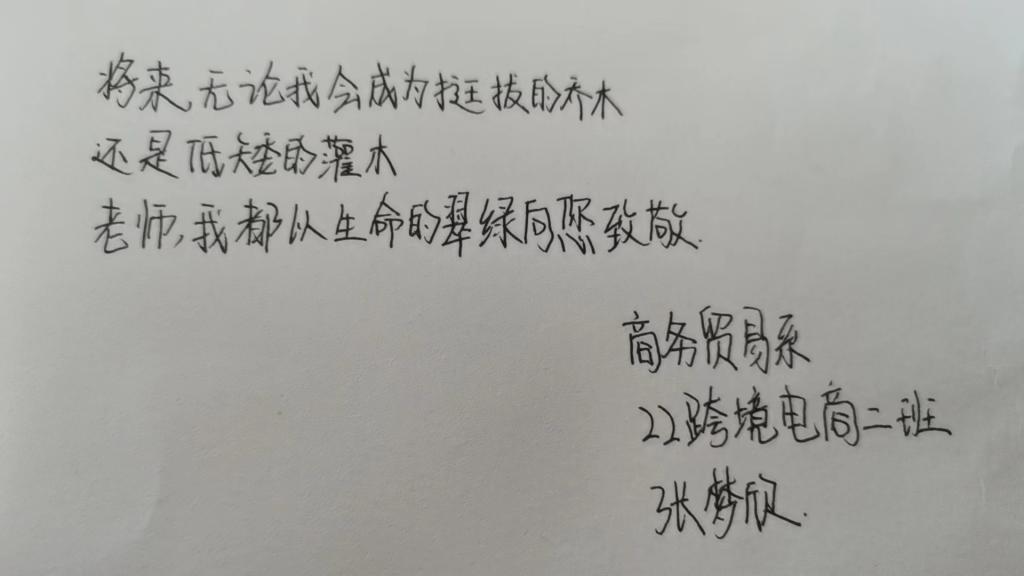 将来,无论我会成为挺拔的乔木
还是低矮的灌木
老师,我都以生命的翠绿向您致敬.
商务贸易系
22跨境电商二班
张梦欣.